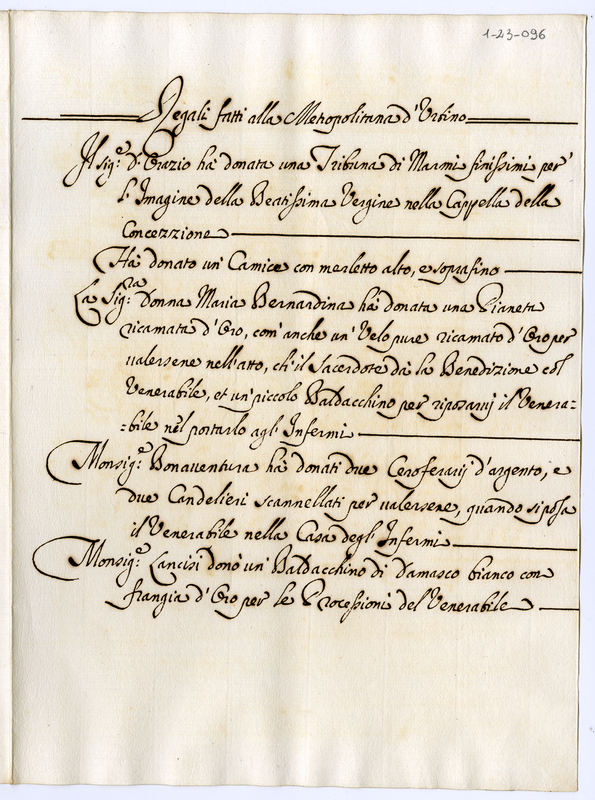 1-23-096
Regali fatti alla Metropolitana d'Urbino
Il Sig.re D. Orazio hà donata una Tribuna di Marmi finissimi per
l'Imagine della Beatissima Vergine nella Cappella della
Concezzione
Hà donato un Camice con merletto alto, e soprafino
La Sig.ra Donna Maria Bernardina hà donata una Pianeta
ricamata d'Oro, com'anche un Velo pure ricamato d'Oro per
valersene nell'atto, ch'il Sacerdote dà la Benedizione col
Venerabile, et un piccolo Baldacchino per riposarvj il Venera=
=bile nel portarlo agl'Infermi
Monsig.re Bonaventura hà donati due Ceroferarij d'argento, e
due Candelieri scannellati per valersene, quando si posa
il Venerabile nella Casa degl'Infermi
Monsig.re Lancisi donò un Baldacchino di Damasco bianco con
frangia d'Oro per le Processioni del Venerabile